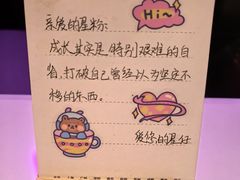 Hi~
亲爱的星粉:
成长其实是特别艰难的自
省,打破自己曾经以为坚定不
移的东西。
爱你的星仔